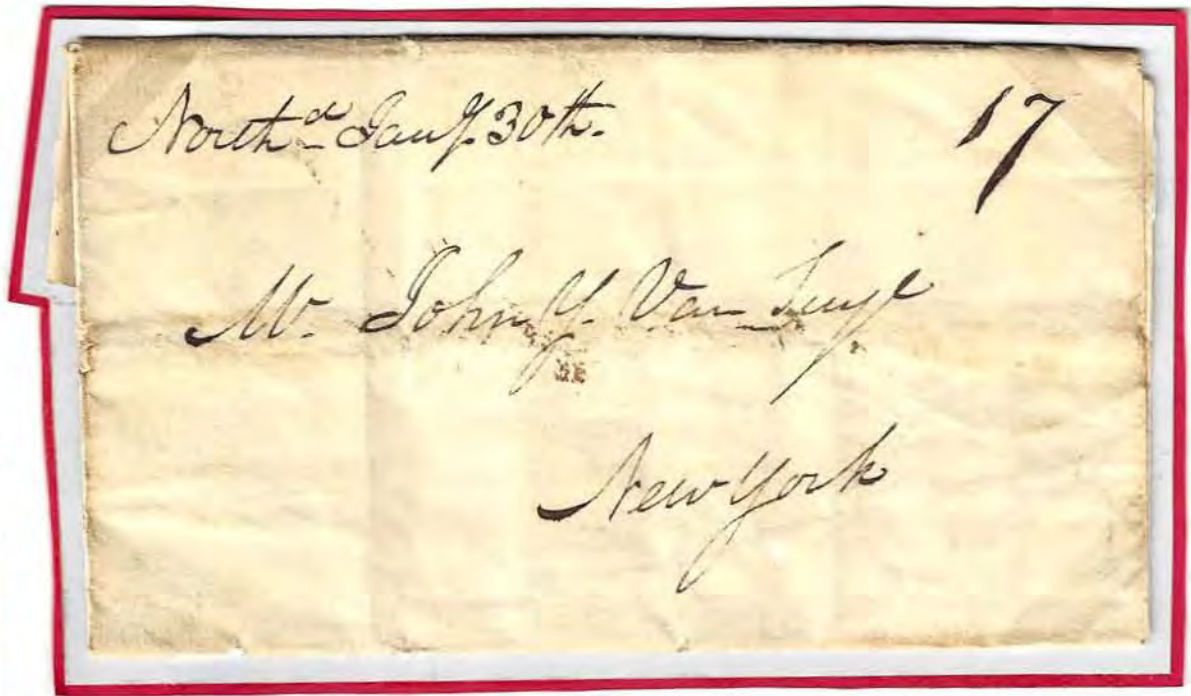 North.d Jany. 30th.
17
Mr. John Y. Van Tuyl
New York